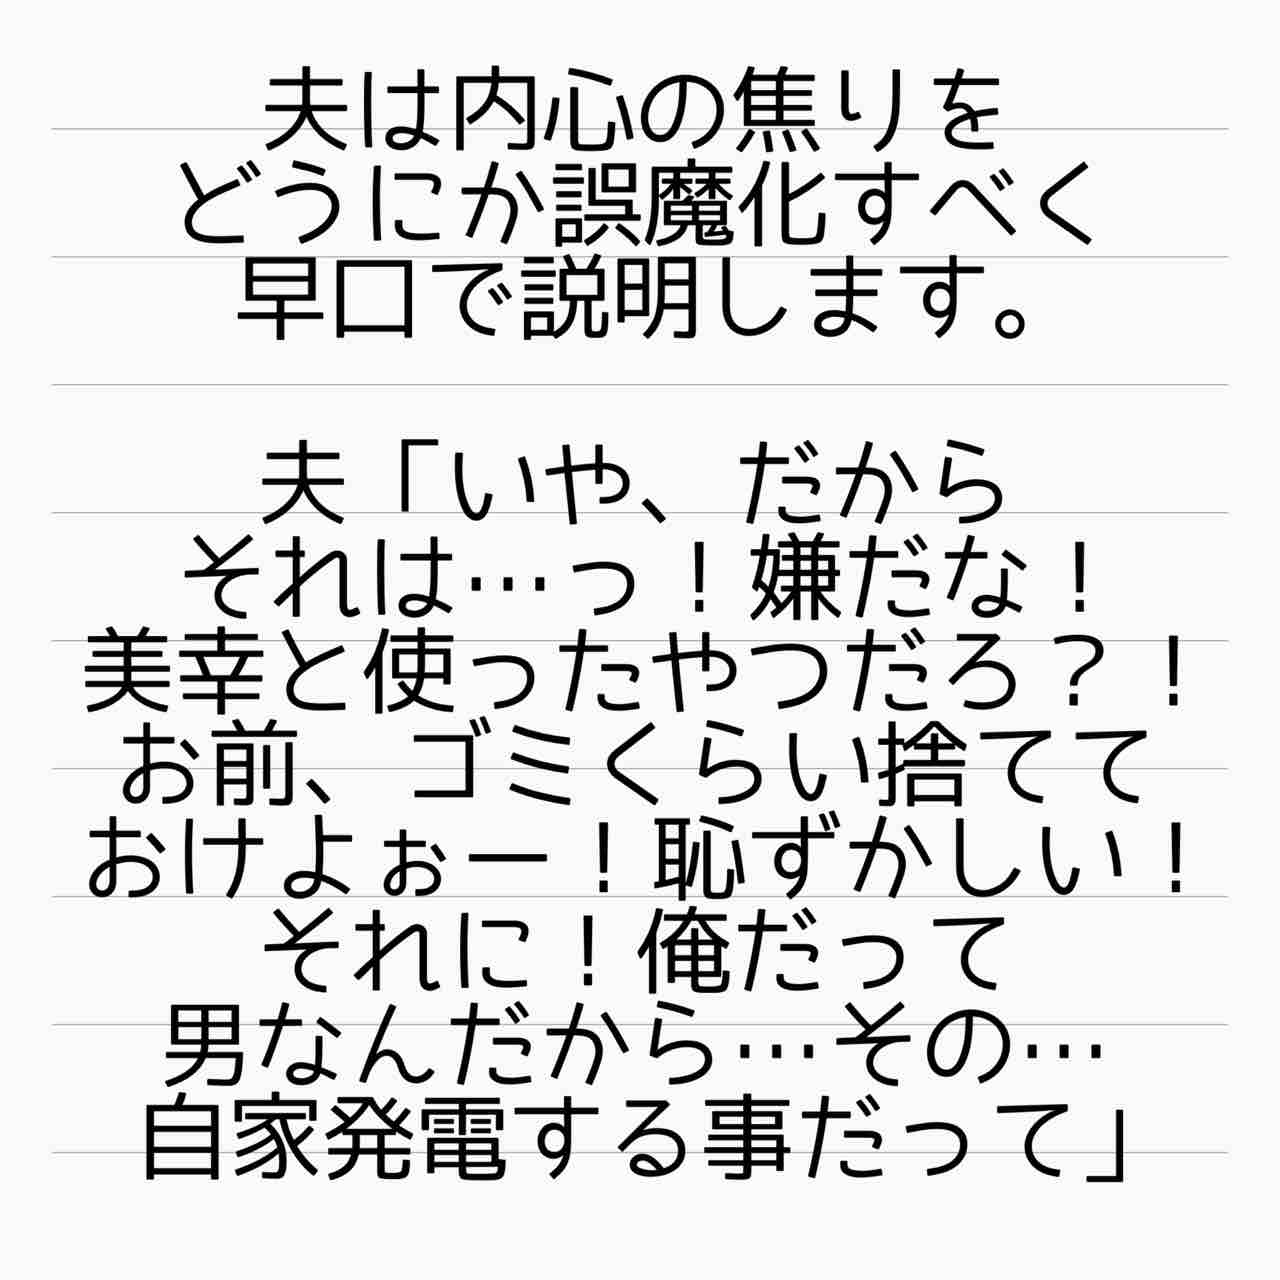 夫は内心の焦りを
どうにか誤魔化すべく
早口で説明します。
夫「いや、だから
それは…っ！嫌だな！
美幸と使ったやつだろ？！
お前、ゴミくらい捨てて
おけよぉー！恥ずかしい！
それに！俺だって
男なんだから…その…
自家発電する事だって」